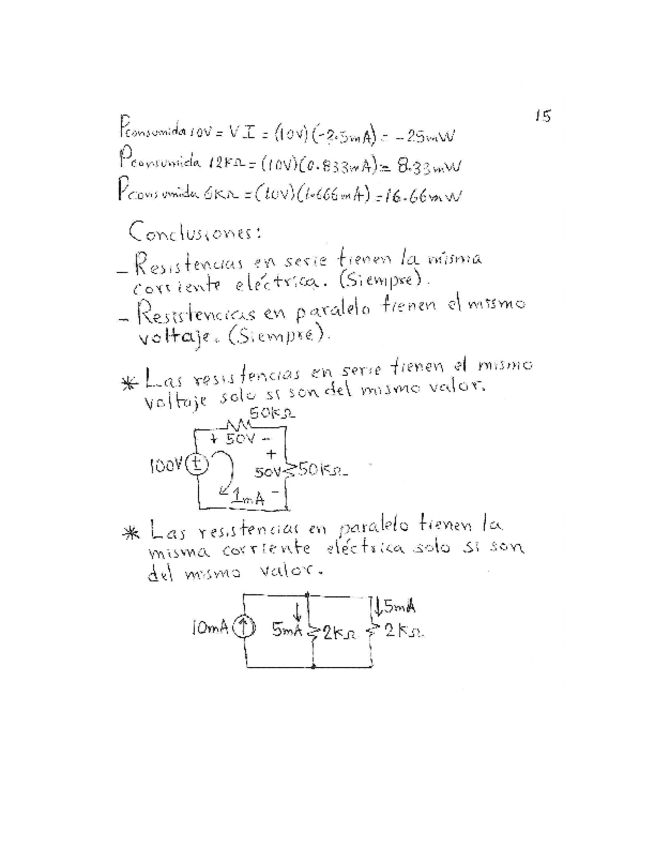 15
Pconsumida 10V = VI = (10V)(-2.5mA) = -25mW
Pconsumida 12KΩ = (10V)(0.833mA) = 8.33mW
Pconsumida 6KΩ = (10V)(1.666mA) = 16.66mW
Conclusiones:
- Resistencias en serie tienen la misma
corriente eléctrica. (Siempre).
- Resistencias en paralelo tienen el mismo
voltaje. (Siempre).
* Las resistencias en serie tienen el mismo
voltaje solo si son del mismo valor.
50KΩ
+ 50V -
+
100V
50V
50KΩ
-
1mA
* Las resistencias en paralelo tienen la
misma corriente eléctrica solo si son
del mismo valor.
5mA
10mA
5mA
2KΩ
2KΩ